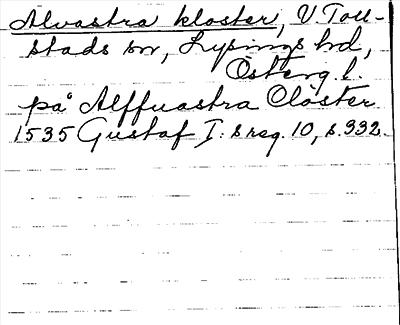 Alvastra kloster, V. Toll-
stads sn, Lysings hd,
Österg. l.
på Alffuastra Closter
1535 Gustaf I:s reg. 10, s. 332.